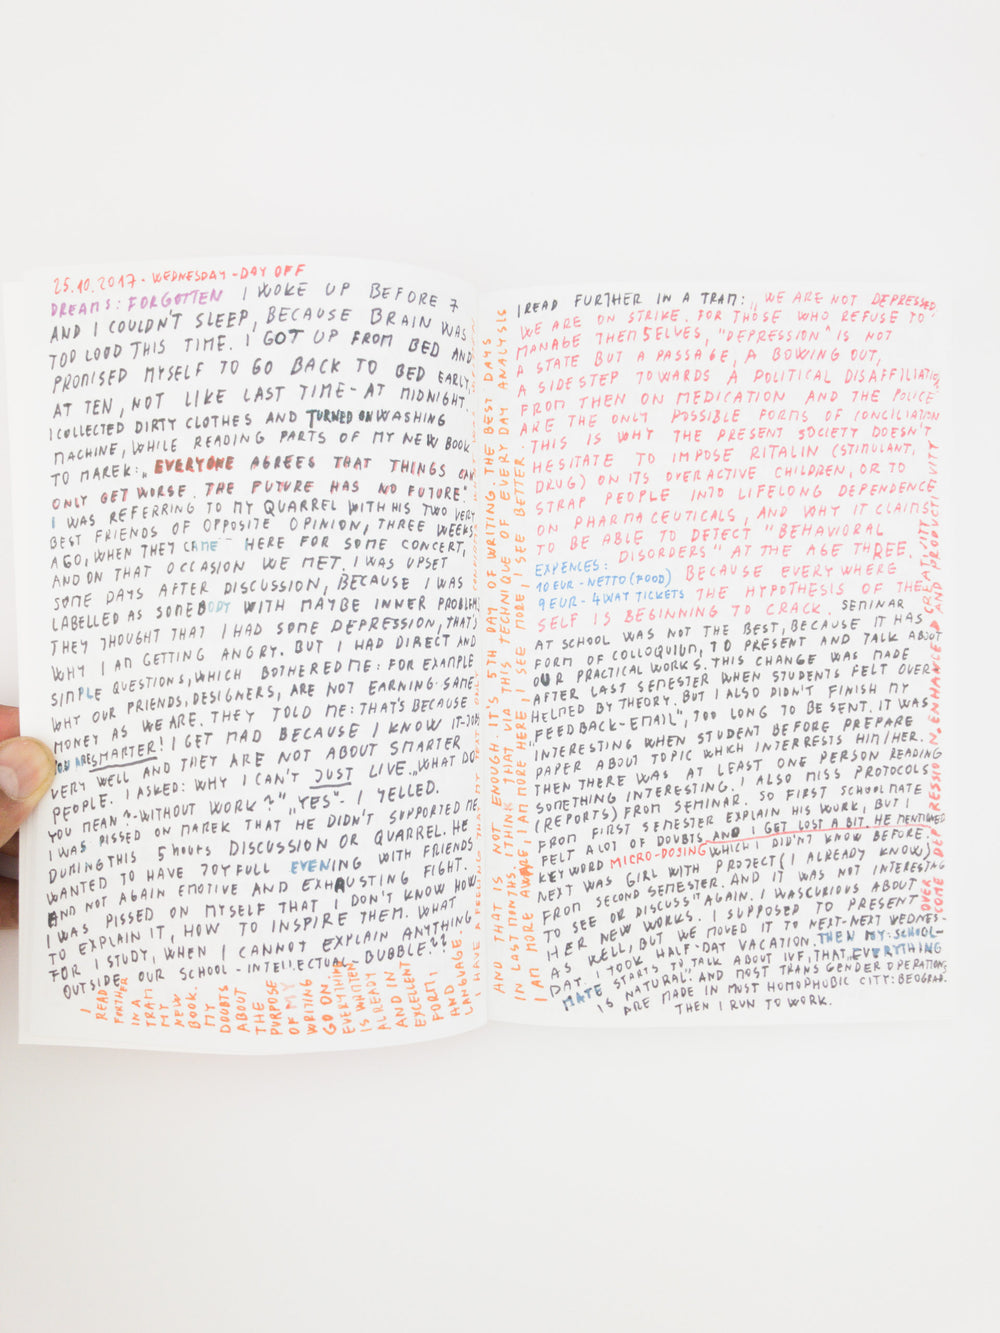 25.10.2017 - WEDNESDAY - DAY OFF
DREAMS: FORGOTTEN I WOKE UP BEFORE 7
AND I COULDN'T SLEEP, BECAUSE BRAIN WAS
TOO LOUD THIS TIME. I GOT UP FROM BED AND
PROMISED MYSELF TO GO BACK TO BED EARLY,
AT TEN, NOT LIKE LAST TIME - AT MIDNIGHT.
I COLLECTED DIRTY CLOTHES AND TURNED ON WASHING
MACHINE, WHILE READING PARTS OF MY NEW BOOK
TO MAREK: „EVERYONE AGREES THAT THINGS CAN
ONLY GET WORSE. THE FUTURE HAS NO FUTURE."
I WAS REFERRING TO MY QUARREL WITH HIS TWO VERY
BEST FRIENDS OF OPPOSITE OPINION, THREE WEEKS
AGO, WHEN THEY CAME HERE FOR SOME CONCERT,
AND ON THAT OCCASION WE MET. I WAS UPSET
SOME DAYS AFTER DISCUSSION, BECAUSE I WAS
LABELLED AS SOMEBODY WITH MAYBE INNER PROBLEMS
THEY THOUGHT THAT I HAD SOME DEPRESSION, THAT'S
WHY I AM GETTING ANGRY. BUT I HAD DIRECT AND
SIMPLE QUESTIONS, WHICH BOTHERED ME: FOR EXAMPLE
WHY OUR FRIENDS, DESIGNERS, ARE NOT EARNING SAME
MONEY AS WE ARE. THEY TOLD ME: THAT'S BECAUSE
YOU ARE SMARTER! I GET MAD BECAUSE I KNOW IT-JOBS
VERY WELL AND THEY ARE NOT ABOUT SMARTER
PEOPLE. I ASKED: WHY I CAN'T JUST LIVE. „WHAT DO
YOU MEAN? - WITHOUT WORK?" „YES" - I YELLED.
I WAS PISSED ON MAREK THAT HE DIDN'T SUPPORTED ME
DURING THIS 5 HOURS DISCUSSION OR QUARREL. HE
WANTED TO HAVE JOYFULL EVENING WITH FRIENDS
AND NOT AGAIN EMOTIVE AND EXHAUSTING FIGHT.
I WAS PISSED ON MYSELF THAT I DON'T KNOW HOW
TO EXPLAIN IT, HOW TO INSPIRE THEM. WHAT
FOR I STUDY, WHEN I CANNOT EXPLAIN ANYTHING
OUTSIDE OUR SCHOOL-INTELLECTUAL-BUBBLE??
I
READ
FURTHER
IN A
TRAM
MY
NEW
BOOK
MY
DOUBTS
ABOUT
THE
PURPOSE
OF MY
WRITING
GO ON.
EVERYTHING
IS WRITTEN
ALREADY
AND IN
EXCELLENT
FORM
AND
LANGUAGE.
I HAVE A FEELING THAT MY TEXT ONLY
AND THAT IS NOT ENOUGH. IT'S 5TH DAY OF WRITING THE BEST DAYS
IN LAST MONTHS. I THINK THAT VIA THIS TECHNIQUE OF EVERY DAY ANALYSIS
I AM MORE AWARE, I AM MORE HERE, I SEE MORE, I SEE BETTER.
I READ FURTHER IN A TRAM: „WE ARE NOT DEPRESSED,
WE ARE ON STRIKE. FOR THOSE WHO REFUSE TO
MANAGE THEMSELVES, "DEPRESSION" IS NOT
A STATE BUT A PASSAGE, A BOWING OUT,
A SIDESTEP TOWARDS A POLITICAL DISAFFILIATION.
FROM THEN ON MEDICATION AND THE POLICE
ARE THE ONLY POSSIBLE FORMS OF CONCILIATION
THIS IS WHY THE PRESENT SOCIETY DOESN'T
HESITATE TO IMPOSE RITALIN (STIMULANT,
DRUG) ON ITS OVERACTIVE CHILDREN, OR TO
STRAP PEOPLE INTO LIFELONG DEPENDENCE
ON PHARMACEUTICALS, AND WHY IT CLAIMS
TO BE ABLE TO DETECT "BEHAVIORAL
DISORDERS" AT THE AGE THREE.
EXPENCES:
10 EUR - NETTO (FOOD)
9 EUR - 4 WAY TICKETS
BECAUSE EVERYWHERE
THE HYPOTHESIS OF THE
SELF IS BEGINNING TO CRACK. SEMINAR
AT SCHOOL WAS NOT THE BEST, BECAUSE IT HAS
FORM OF COLLOQUIUM, TO PRESENT AND TALK ABOUT
OUR PRACTICAL WORKS. THIS CHANGE WAS MADE
AFTER LAST SEMESTER WHEN STUDENTS FELT OVER
HELMED BY THEORY. BUT I ALSO DIDN'T FINISH MY
"FEEDBACK-EMAIL", TOO LONG TO BE SENT. IT WAS
INTERESTING WHEN STUDENT BEFORE PREPARE
PAPER ABOUT TOPIC WHICH INTERRESTS HIM/HER.
THEN THERE WAS AT LEAST ONE PERSON READING
SOMETHING INTERESTING. I ALSO MISS PROTOCOLS
(REPORTS) FROM SEMINAR. SO FIRST SCHOOLMATE
FROM FIRST SEMESTER EXPLAIN HIS WORK, BUT I
FELT A LOT OF DOUBTS AND I GET LOST A BIT. HE MENTIONED
KEYWORD MICRO-DOSING WHICH I DIDN'T KNOW BEFORE.
NEXT WAS GIRL WITH PROJECT (I ALREADY KNOW)
FROM SECOND SEMESTER. AND IT WAS NOT INTERESTING
TO SEE OR DISCUSS" AGAIN. I WAS CURIOUS ABOUT
HER NEW WORKS. I SUPPOSED TO PRESENT
AS WELL, BUT WE MOVED IT TO NEXT-NEXT WEDNES-
DAY. I TOOK HALF-DAY VACATION. THEN MY SCHOOL-
MATE STARTS TO TALK ABOUT IVF, THAT „EVERYTHING
IS NATURAL" AND MOST TRANSGENDER OPERATIONS
ARE MADE IN MOST HOMOPHOBIC CITY: BEOGRAD.
THEN I RUN TO WORK.
OVER
COME DEPRESSION. ENHANCED CREATIVITY
AND PRODUCTIVITY